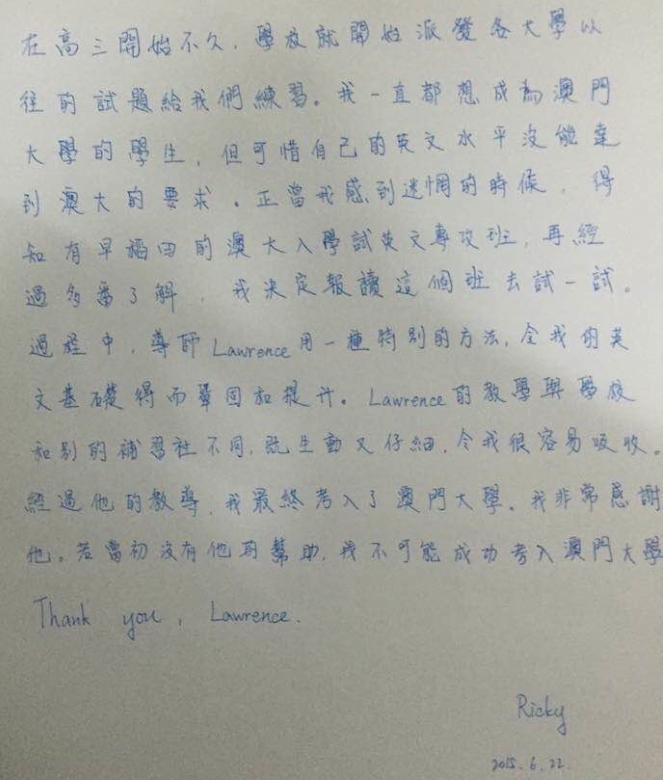 在高三開始不久，學校就開始派發各大學以
往的試題給我們練習。我一直都想成為澳門
大學的學生，但可惜自己的英文水平沒能達
到澳大的要求。正當我感到迷惘的時候，得
知有早稻田的澳大入學試英文專攻班，再經
過多番了解，我決定報讀這個班去試一試。
過程中，導師Lawrence用一種特別的方法，令我的英
文基礎得而鞏固和提升。Lawrence的教學與學校
和別的補習社不同，既生動又仔細，令我很容易吸收。
經過他的教導，我最終考入了澳門大學。我非常感謝
他。若當初沒有他的幫助，我不可能成功考入澳門大學
Thank you, Lawrence.
Ricky
2015.6.22.